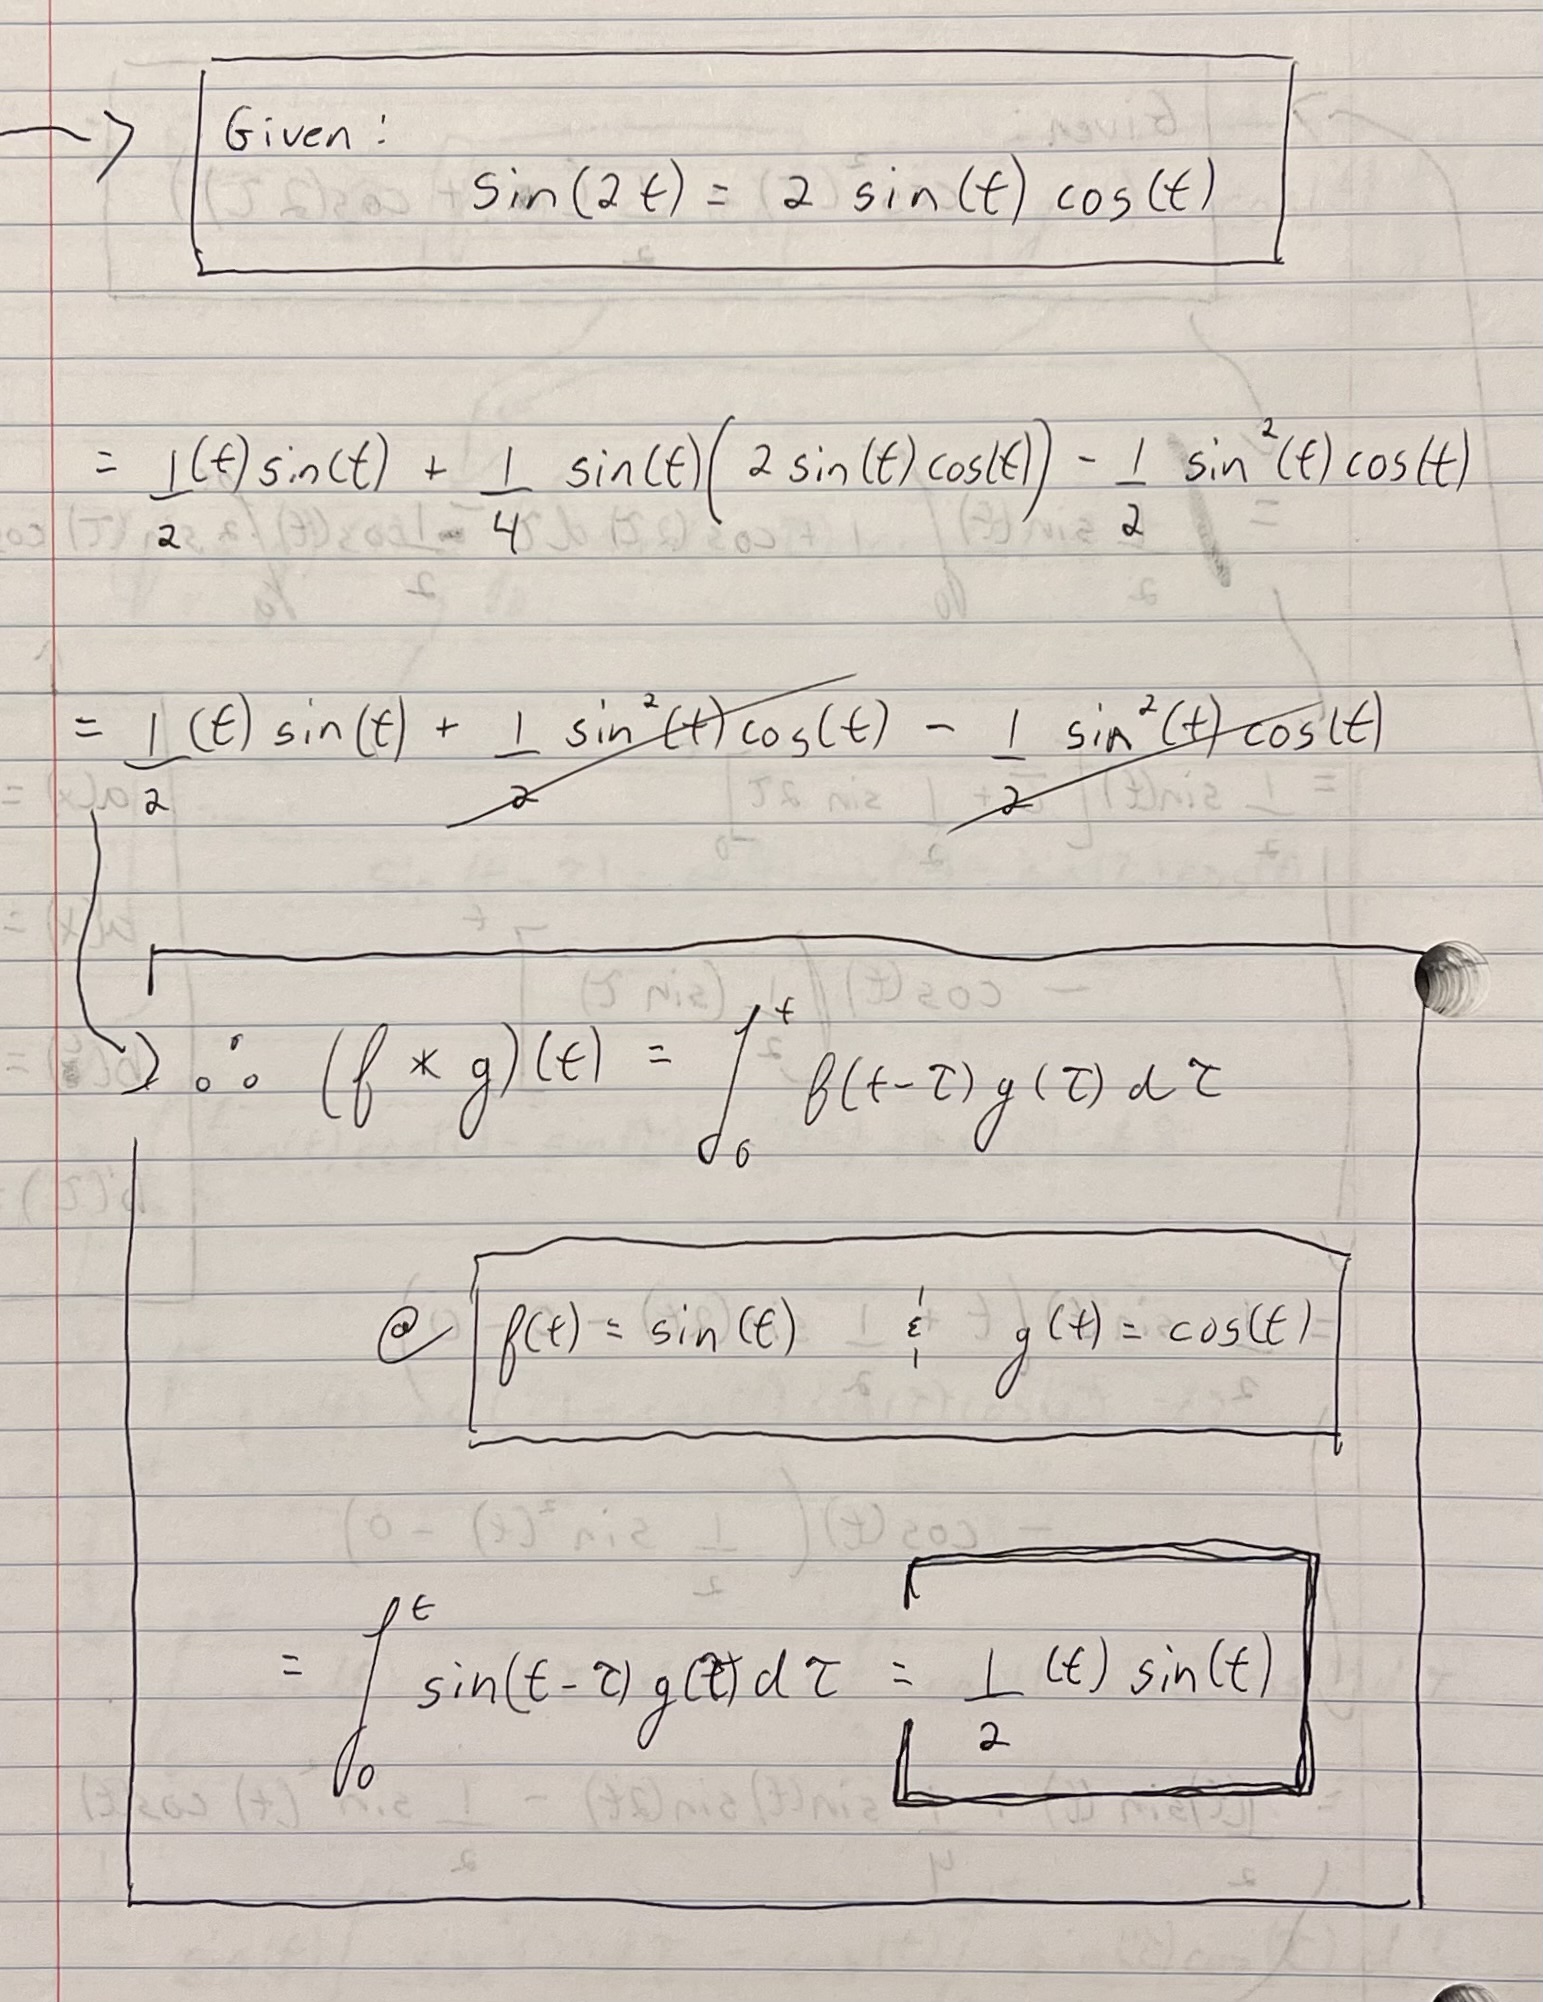 Given:
sin(2t) = 2 sin(t) cos(t)
= 1/2 (t) sin(t) + 1/4 sin(t)(2 sin(t) cos(t)) - 1/2 sin²(t) cos(t)
= 1/2 (t) sin(t) + 1/2 sin²(t) cos(t) - 1/2 sin²(t) cos(t)
∴ (f * g)(t) = ∫₀ᵗ f(t-τ) g(τ) dτ
@ f(t) = sin(t) & g(t) = cos(t)
= ∫₀ᵗ sin(t-τ) g(τ) dτ = 1/2 (t) sin(t)